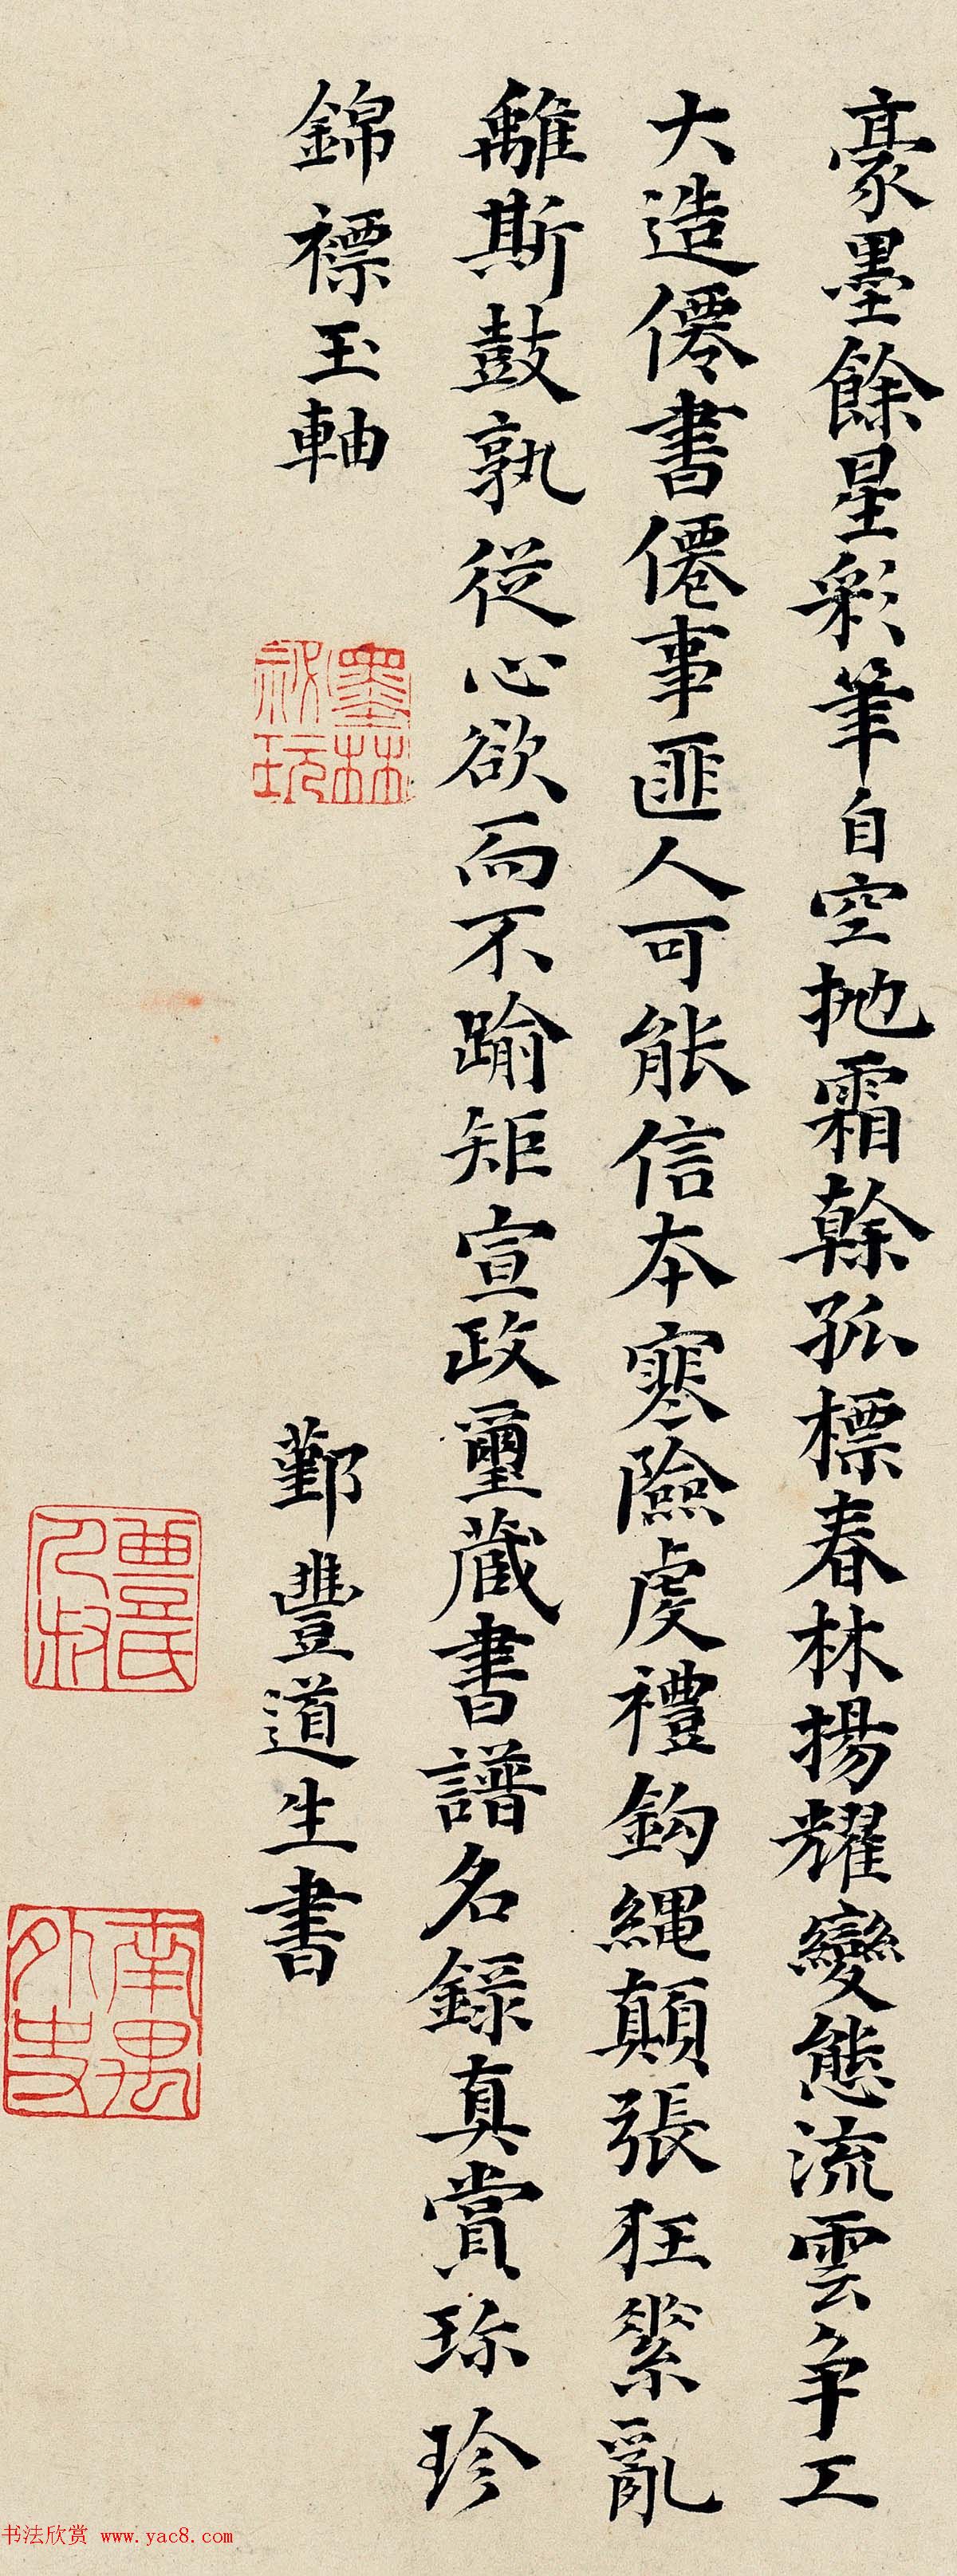 豪墨餘星彩筆自空拋霜榦孤標春林揚耀變態流雲爭工
大造僊書僊事匪人可能信本寒險虔禮鈎繩顛張狂縈亂
離斯鼓孰從心欲而不踰矩宣政璽藏書譜名錄真賞珎珍
錦褾玉軸
墨林祕玩
鄞豐道生書
豐氏人叔
南禺外史
书法欣赏 www.yac8.com